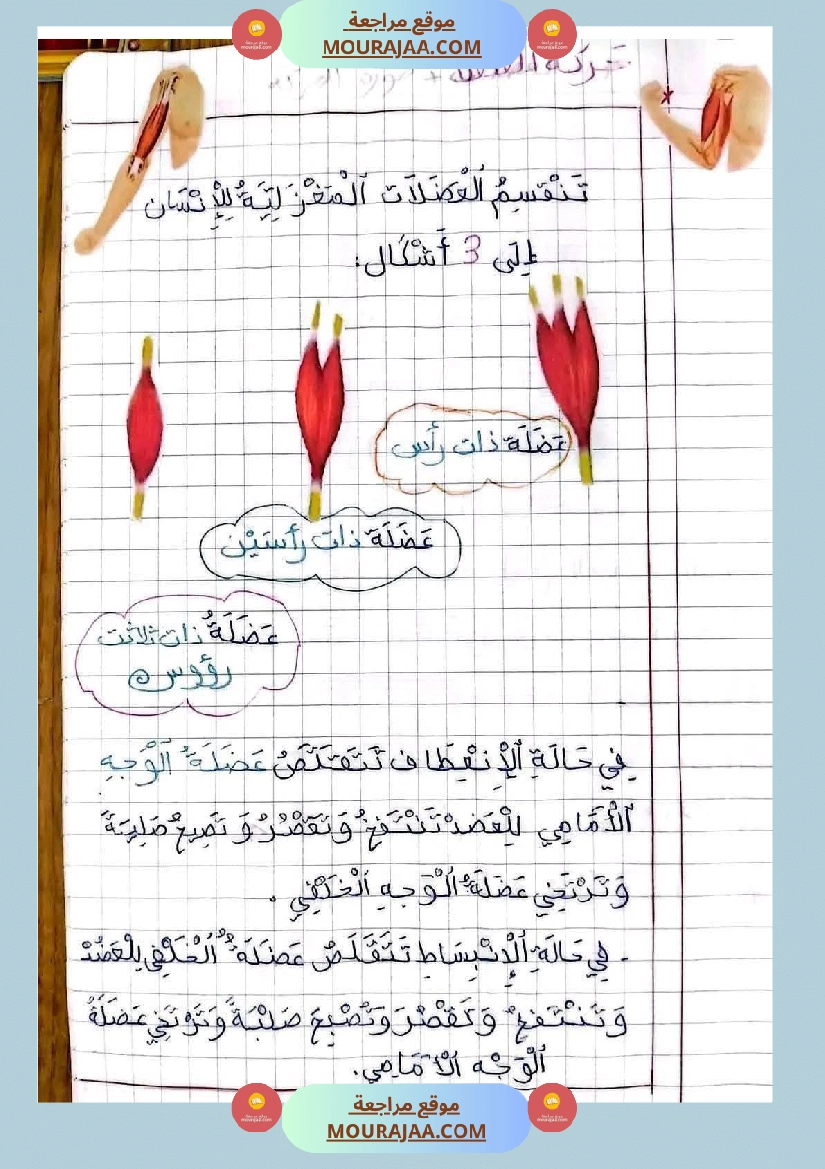 موقع مراجعة
MOURAJAA.COM
تَنْقَسِمُ الْعَضَلَات الْمِغْزَلِيَّةُ لِلْإِنْسَان
إِلَى 3 أَشْكَال:
عَضَلَة ذات رأس
عَضَلَة ذات رأسَيْن
عَضَلَةٌ ذات ثلاثت
رؤوس
فِي حَالَةِ الْإِنْعِطَاف تَتَقَلَّصُ عَضَلَةُ الْوَجْهِ
الْأَمَامِي لِلْعَضد تَنْتَفِخُ وَتَقْصُرُ وَ تَصبِحُ صَلِبَةً
وَتَرْتَخِي عَضَلَةُ الْوَجهِ الْخَلْفِي .
- فِي حَالَةِ الْإِنْبِسَاطِ تَتَقَلَّصُ عَضَلَةُ الْخَلْفِي لِلْعَضُدْ
وَتَنْتَفخُ وَتَقْصُرَ وَتُصْبِحَ صَلْبَةً وَتَرْتَخِي عَضَلَةُ
الْوَجْه الْأَمَامِي.
موقع مراجعة
MOURAJAA.COM